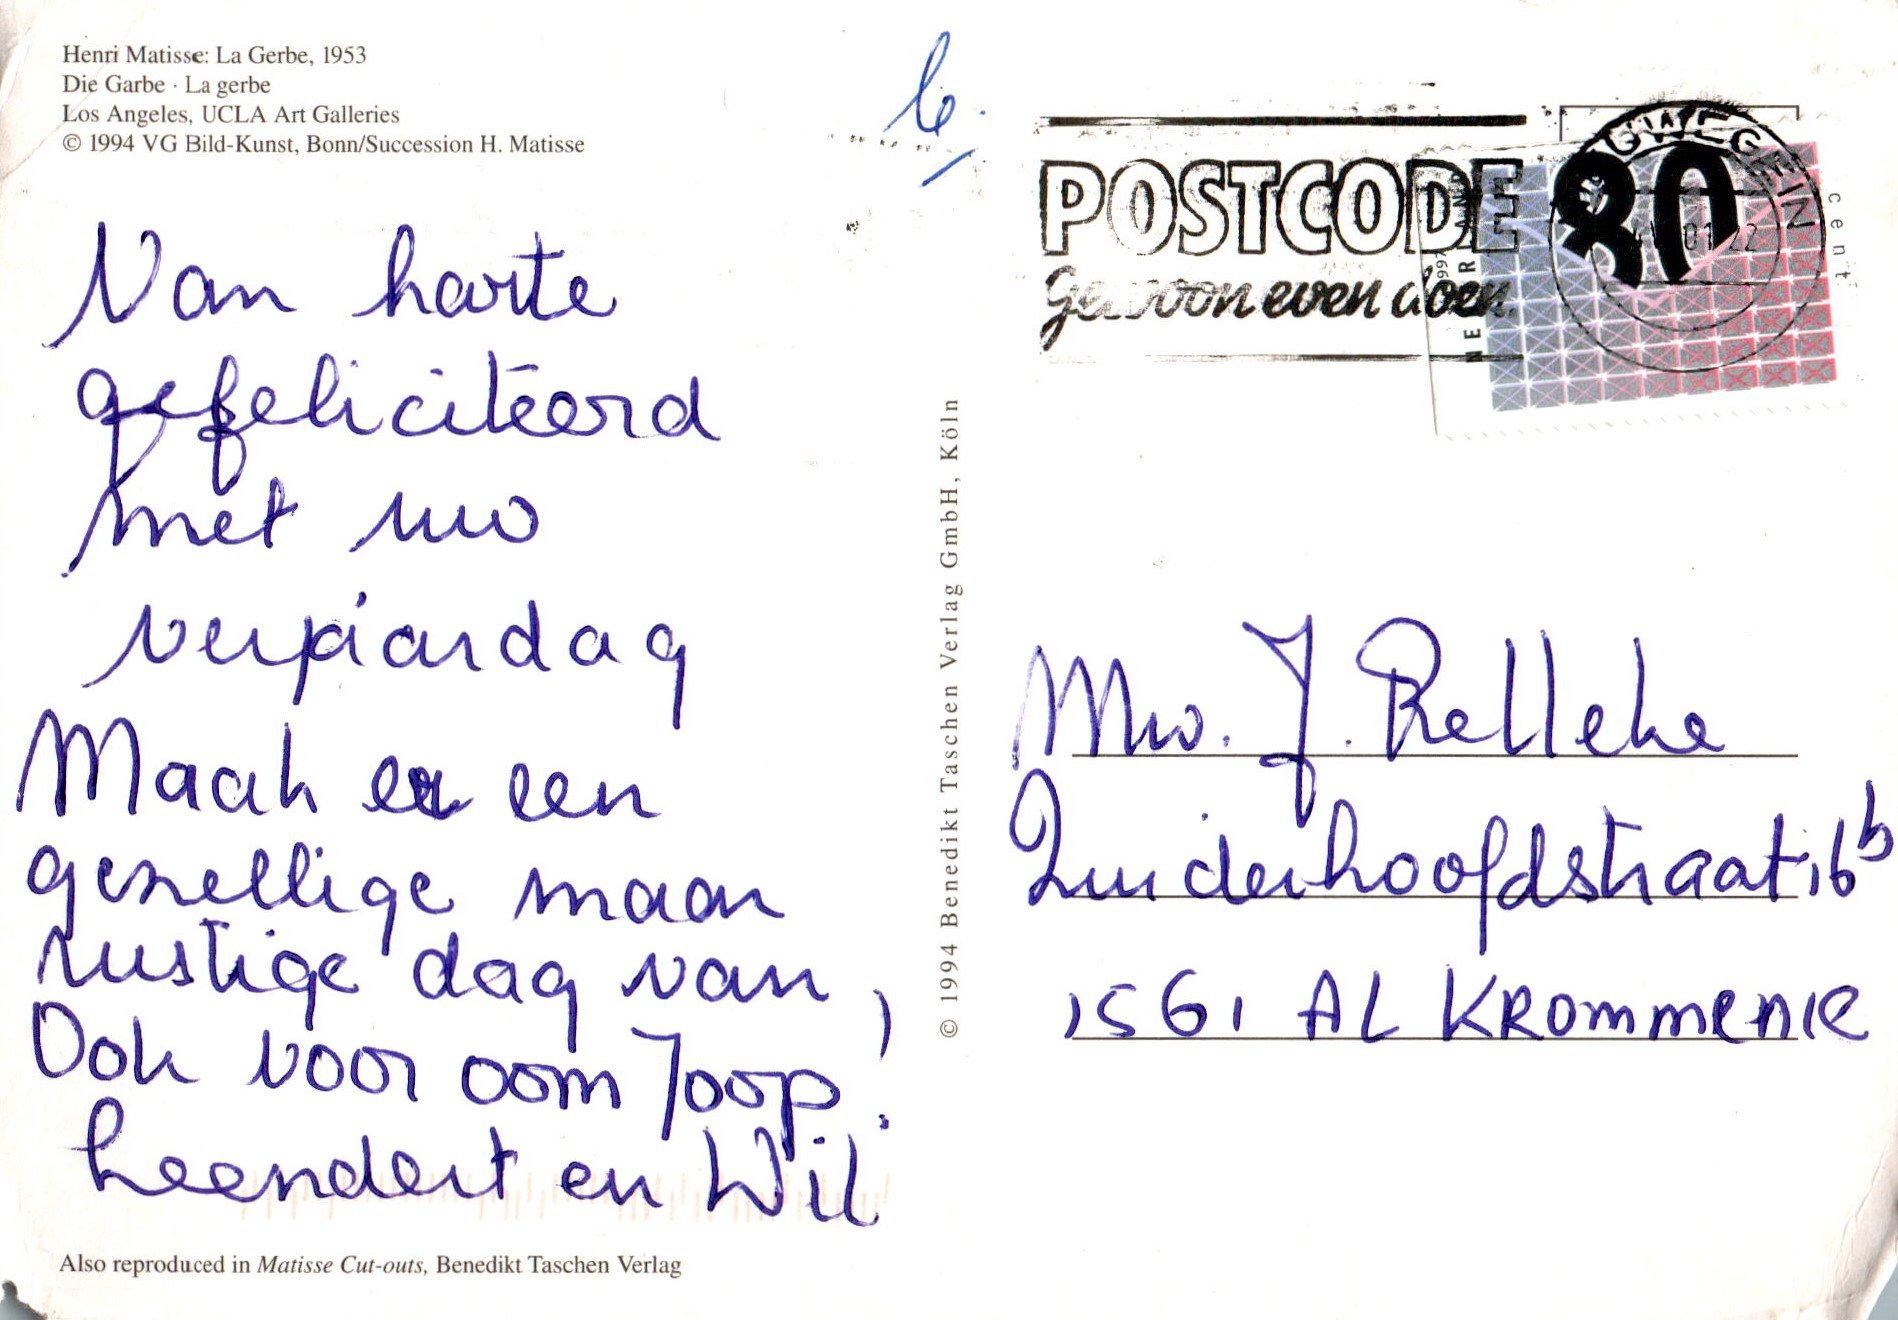 Henri Matisse: La Gerbe, 1953
Die Garbe · La gerbe
Los Angeles, UCLA Art Galleries
© 1994 VG Bild-Kunst, Bonn/Succession H. Matisse
Van harte
gefeliciteerd
met uw
verjaardag
Maak er een
gezellige maar
rustige dag van,
Ook voor oom Joop!
Leendert en Wil
Also reproduced in Matisse Cut-outs, Benedikt Taschen Verlag
© 1994 Benedikt Taschen Verlag GmbH, Köln
POSTCODE
Gewoon even doen.
80
cent
Mw. J. Relleke
Zuiderhoofdstraat 16b
1561 AL KROMMENIE